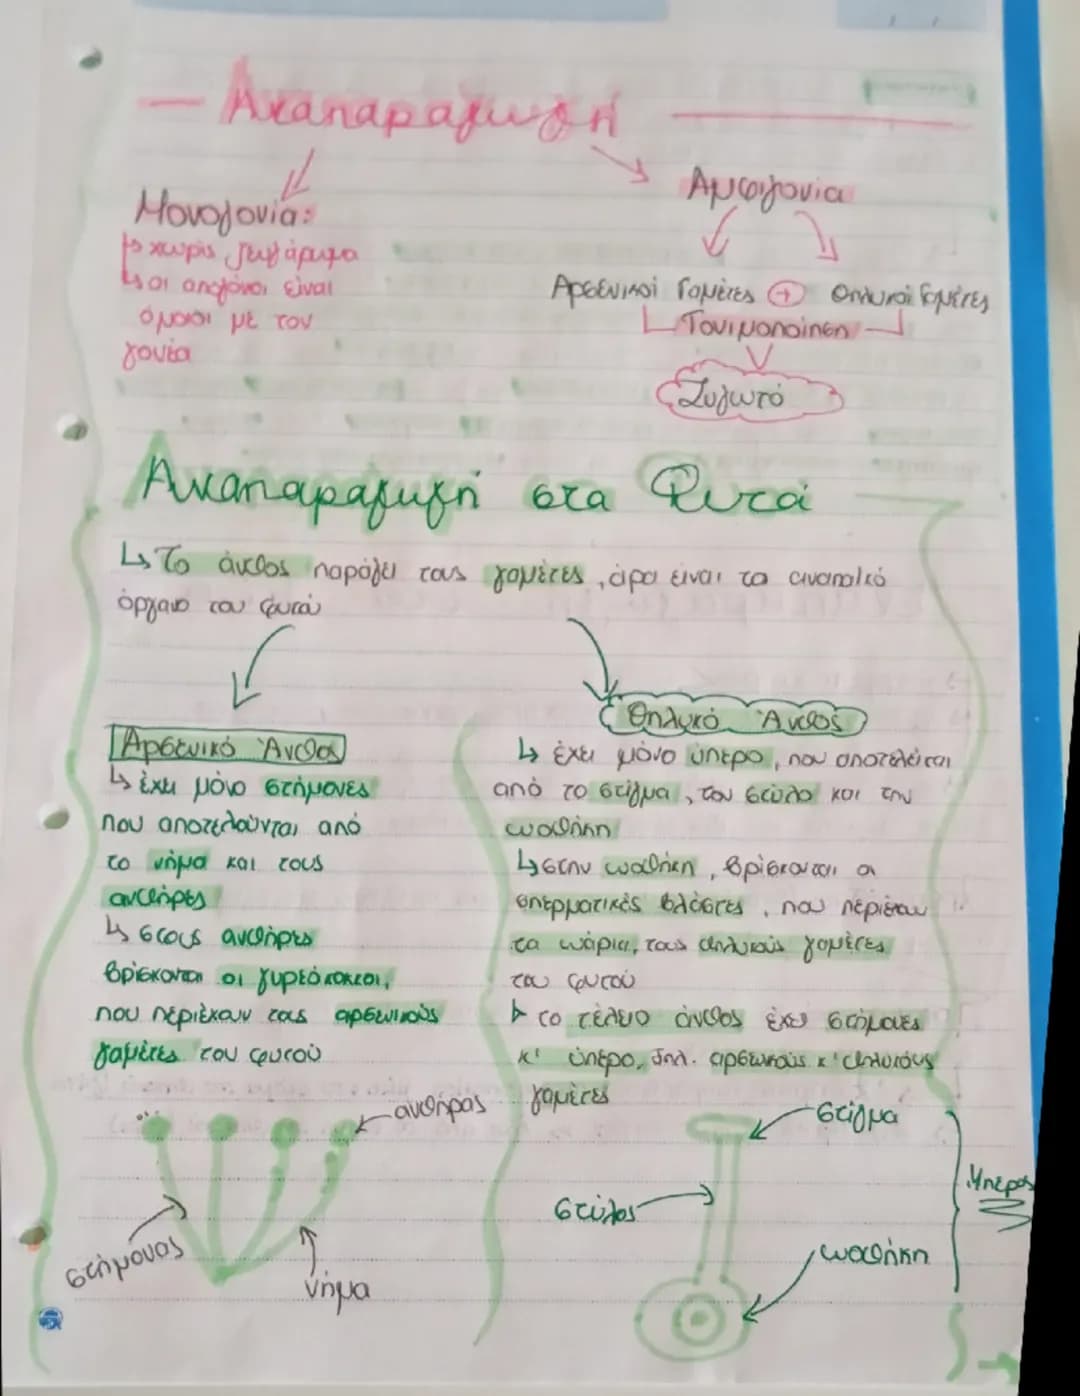 Αναπαραγωγή
Μονογονία:
↳ χωρίς ζευγάρωμα
↳ οι απογόνοι είναι
όμοιοι με τον
γονέα
Αμφιγονία
Αρσενικοί Γαμέτες + Θηλυκοί Γαμέτες
Γονιμοποίηση
Ζυγωτό
Αναπαραγωγή στα Φυτά
↳ Το άνθος παράγει τους γαμέτες, άρα είναι το αναπαλκό
όργανο του φυτού
Αρσενικό Άνθος
↳ έχει μόνο στήμονες
που αποτελούνται από
το νήμα και τους
ανθήρες
↳ στους ανθήρες
βρίσκονται οι γυρεόκοκκοι,
που περιέχουν τους αρσενικούς
γαμέτες του φυτού
Θηλυκό Άνθος
↳ έχει μόνο ύπερο, που αποτελείται
από το στίγμα, τον στύλο και την
ωοθήκη
↳ στην ωοθήκη, βρίσκονται οι
σπερματικές βλάστες, που περιέχουν
τα ωάρια, τους θηλυκούς γαμέτες
του φυτού
▸ το τέλειο άνθος έχει στήμονες
κ' ύπερο, δηλ. αρσενικούς κ' θηλυκούς
γαμέτες
ανθήρας
στήμονας
νήμα
στίγμα
στύλος
ωοθήκη
Ύπερος